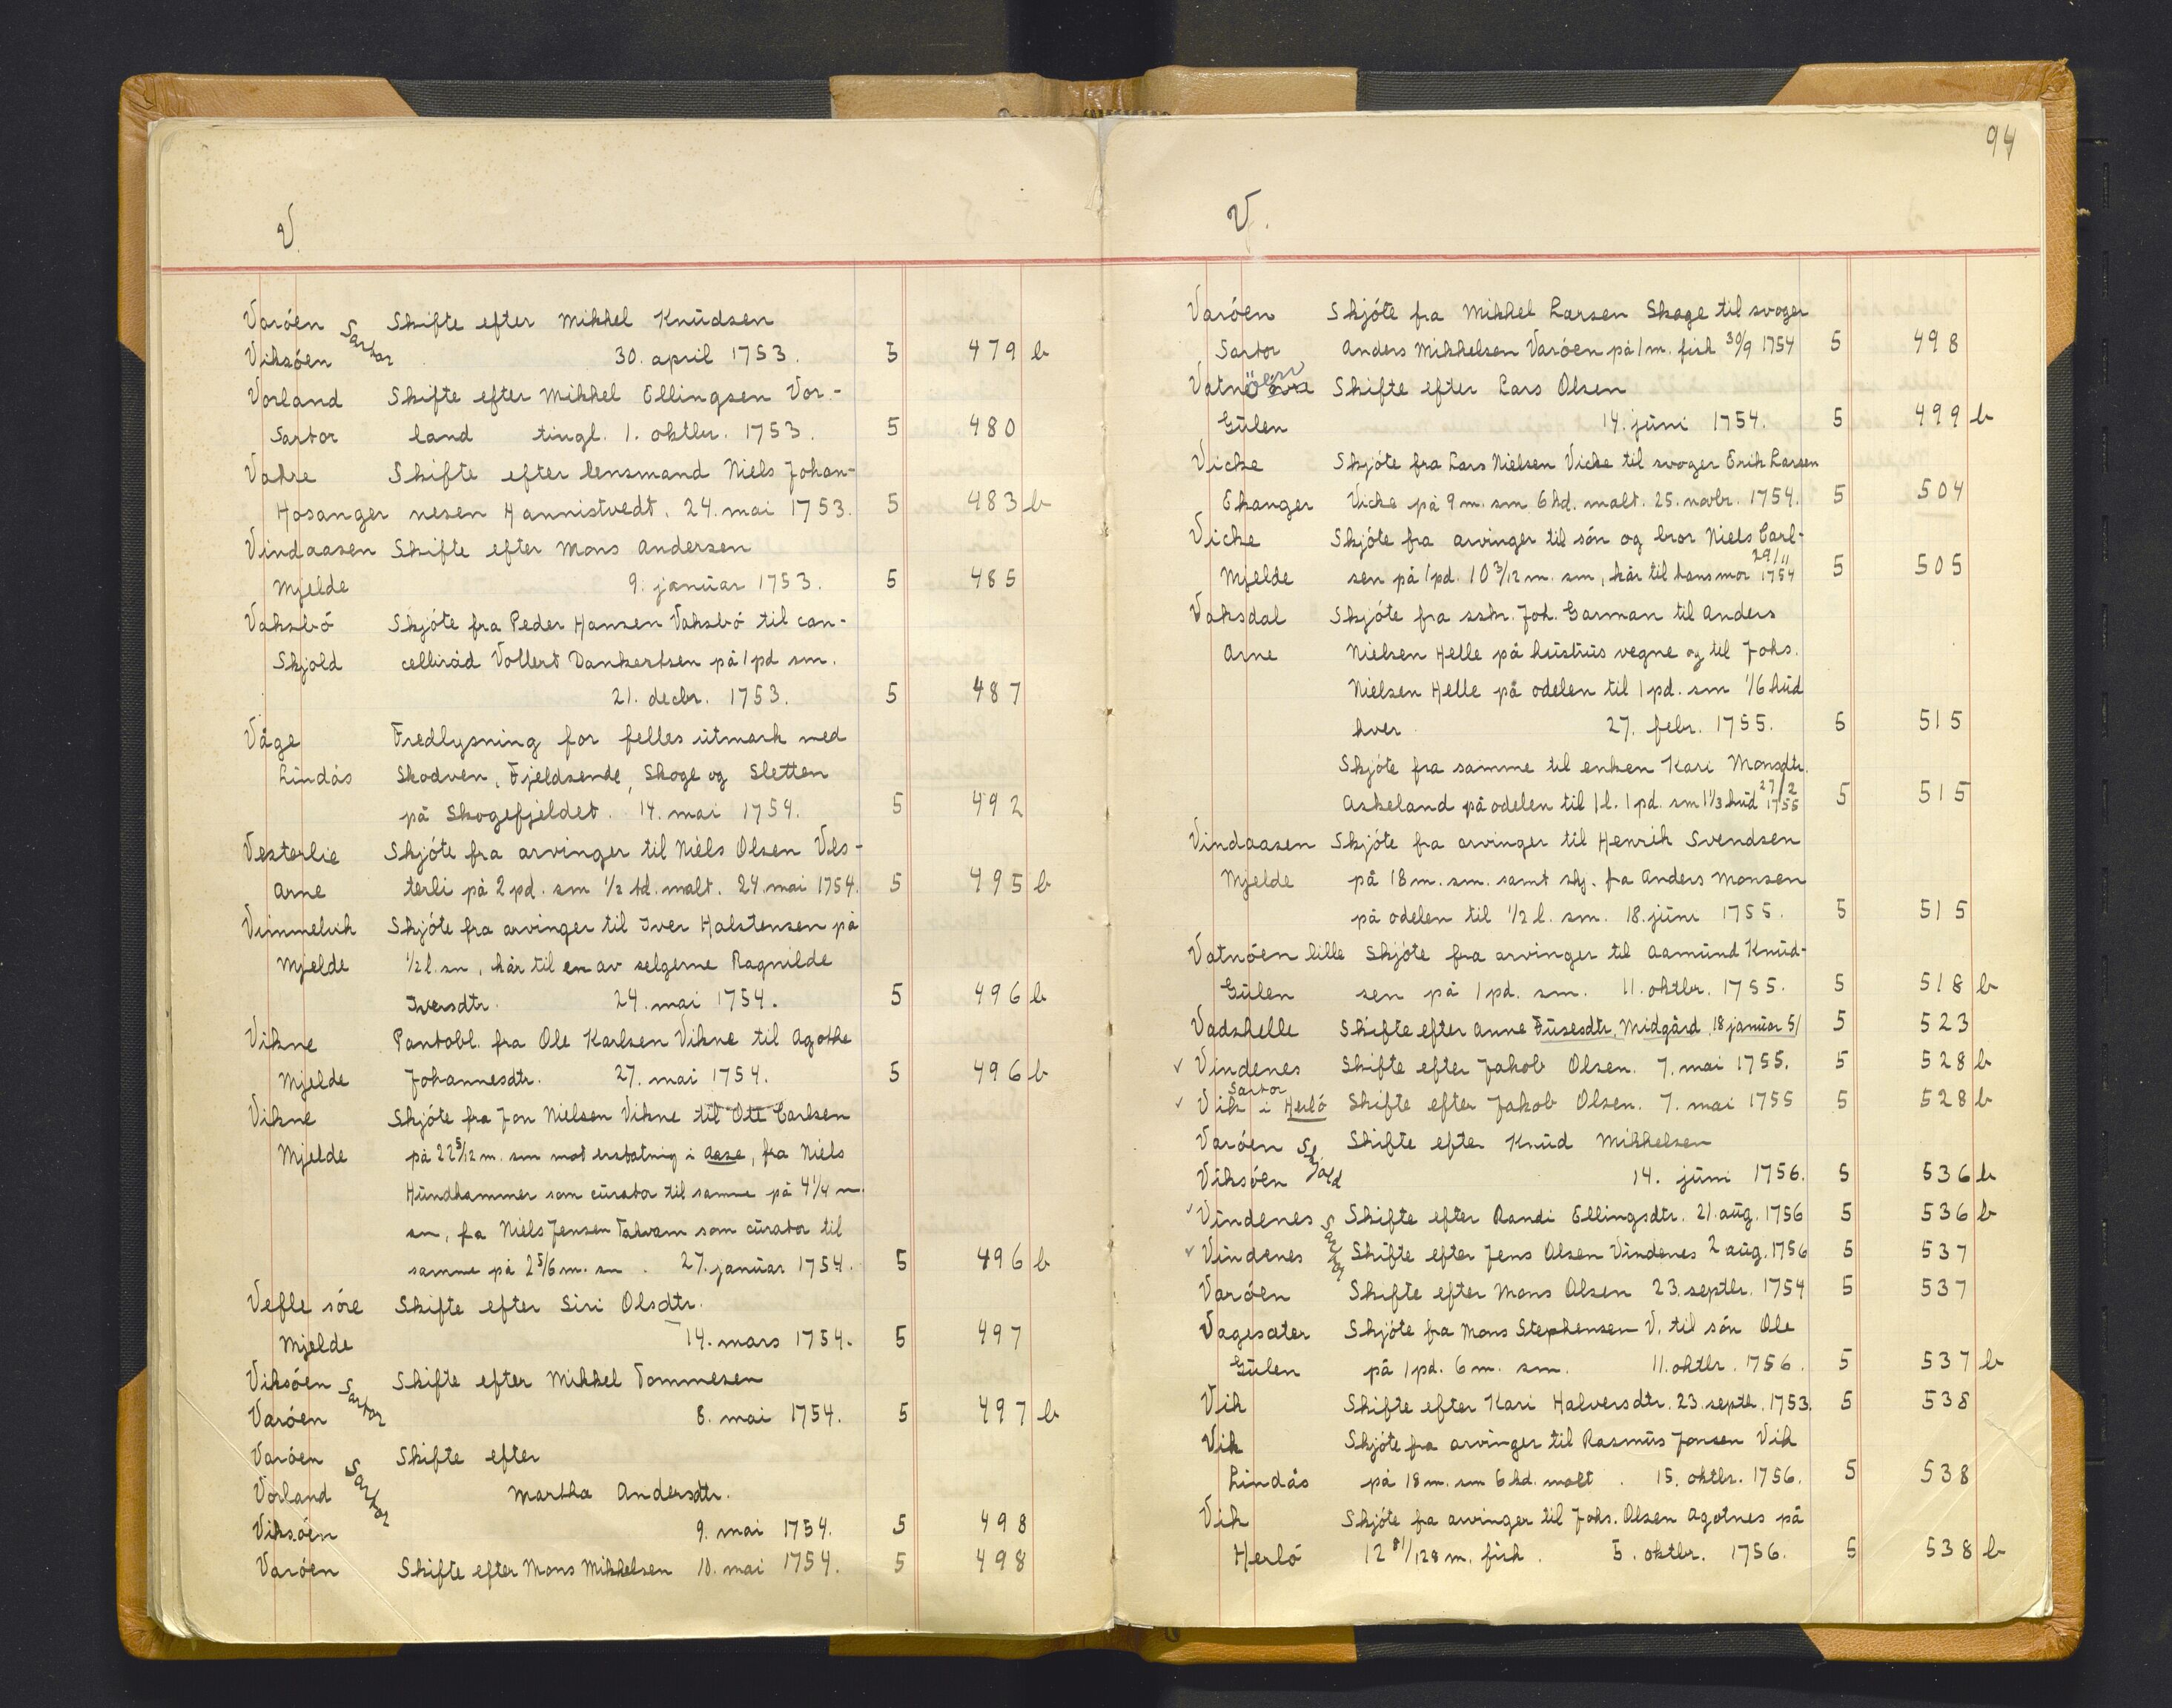 V.
Varóen Sartor Skifte efter Mikkel Knudsen
Viksóen 30. april 1753. 5 479 b
Vorland Skifte efter Mikkel Ellingsen Vor-
Sartor land tingl. 1. oktbr. 1753. 5 480
Vakre Skifte efter lensmand Niels Johan-
Hosanger nesen Hannistvedt. 24. mai 1753. 5 483 b
Vindaasen Skifte efter Mons Andersen
Mjelde 9. januar 1753. 5 485
Vaksbó Skjóte fra Peder Hansen Vaksbó til can-
Skjold celliråd Vollert Dankertsen på 1 pd sm.
21. decbr. 1753. 5 487
Våge Fredlysning for felles utmark med
Lindås Skodven, Fjeldsende, Skoge og Sletten
på Skogefjeldet. 14. mai 1754. 5 492
Vesterlie Skjóte fra arvinger til Niels Olsen Ves-
Arne terli på 2 pd. sm 1/2 td. malt. 24. mai 1754. 5 495 b
Vimmelvik Skjóte fra arvinger til Iver Halstensen på
Mjelde 1/2 l. sm, kår til en av selgerne Ragnilde
Iversdtr. 24. mai 1754. 5 496 b
Vikne Pantobl. fra Ole Karlsen Vikne til Agothe
Mjelde Johannesdtr. 27. mai 1754. 5 496 b
Vikne Skjóte fra Jon Nielsen Vikne til Ole Carlsen
Mjelde på 22 5/12 m. sm mot erstatning i Aase, fra Niels
Hundhammer som curator til samme på 4 1/4 m.
sm, fra Niels Jensen Takvam som curator til
samme på 2 5/6 m. sm. 27. januar 1754. 5 496 b
Vefle sóre Skifte efter Siri Olsdtr.
Mjelde 14. mars 1754. 5 497
Viksóen Sartor Skifte efter Mikkel Tommesen
Varóen 8. mai 1754. 5 497 b
Varóen Sartor Skifte efter
Vorland Martha Andersdtr.
Viksóen 9. mai 1754. 5 498
Varóen Skifte efter Mons Mikkelsen 10. mai 1754. 5 498
94
V.
Varóen Skjóte fra Mikkel Larsen Skage til svoger
Sartor Anders Mikkelsen Varóen på 1 m. fisk 30/9 1754 5 498
Vatnöen Skifte efter Lars Olsen
Gulen 14. juni 1754. 5 499 b
Vicke Skjóte fra Lars Nielsen Vicke til svoger Erik Larsen
Ekanger Vicke på 9 m. sm 6 kd. malt. 25. novbr. 1754. 5 504
Vicke Skjóte fra arvinger til són og bror Niels Carl-
Mjelde sen på 1 pd. 10 3/12 m. sm, kår til hans mor 29/11 1754 5 505
Vaksdal Skjóte fra sskr. Joh. Garman til Anders
Arne Nielsen Helle på hustrus vegne og til Johs.
Nielsen Helle på odelen til 1 pd. sm 1/6 hud
hver 27. febr. 1755. 5 515
Skjóte fra samme til enken Kari Monsdtr.
Askeland på odelen til 1 l. 1 pd. sm 1 1/3 hud 27/2 1755 5 515
Vindaasen Skjóte fra arvinger til Henrik Svendsen
Mjelde på 18 m. sm. samt skj. fra Anders Monsen
på odelen til 1/2 l. sm. 18. juni 1755. 5 515
Vatnóen lille Skjóte fra arvinger til Aamund Knud-
Gulen sen på 1 pd. sm. 11. oktbr. 1755. 5 518 b
Vadshelle Skifte efter Anne Fusesdtr. Midgård 18 januar 51 5 523
✓ Vindenes Skifte efter Jakob Olsen. 7. mai 1755. 5 528 b
Sartor
✓ Vik i Herló Skifte efter Jakob Olsen. 7. mai 1755 5 528 b
Varóen Skjold Skifte efter Knud Mikkelsen
Viksóen 14. juni 1756. 5 536 b
✓ Vindenes Sartor Skifte efter Randi Ellingsdtr. 21. aug. 1756 5 536 b
✓ Vindenes Skifte efter Jens Olsen Vindenes 2 aug. 1756 5 537
Varóen Skifte efter Mons Olsen 23. septbr. 1754 5 537
Vagesæter Skjóte fra Mons Stephensen V. til són Ole
Gulen på 1 pd. 6 m. sm. 11. oktbr. 1756. 5 537 b
Vik Skifte efter Kari Halversdtr. 23. septr. 1753. 5 538
Vik Skjóte fra arvinger til Rasmus Jonsen Vik
Lindås på 18 m. sm 6 kd. malt. 15. oktbr. 1756. 5 538
Vik Skjóte fra arvinger til Johs. Olsen Agotnes på
Herló 12 81/128 m. fisk. 5. oktbr. 1756. 5 538 b